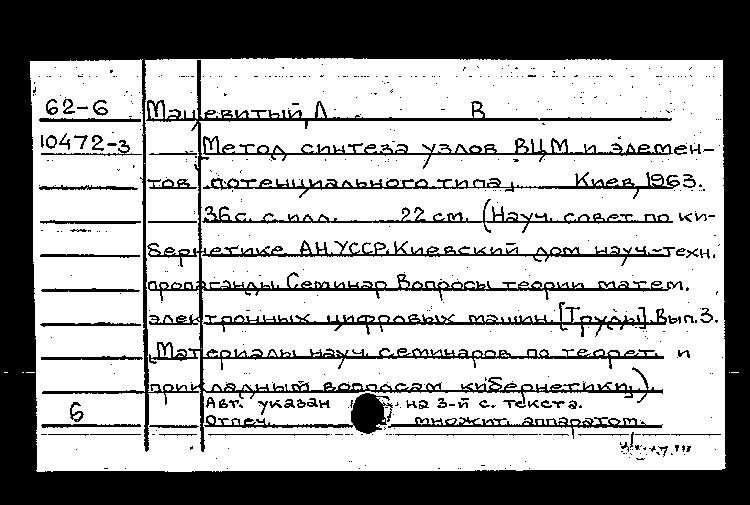 62-6 Мацевитый, Л В
10472-3 Метод синтеза узлов ВЦМ и элемен-
тов потенциального типа, Киев, 1963.
36 с. с илл. 22 см. (Науч. совет по ки-
бернетике АН УССР. Киевский дом науч.-техн.
пропаганды. Семинар Вопросы теории матем.
электронных цифровых машин. [Труды]. Вып. 3.
Материалы науч. семинаров по теорет. и
прикладным вопросам кибернетики).
6 Авт. указан на 3-й с. текста.
Отпеч. множит. аппаратом.